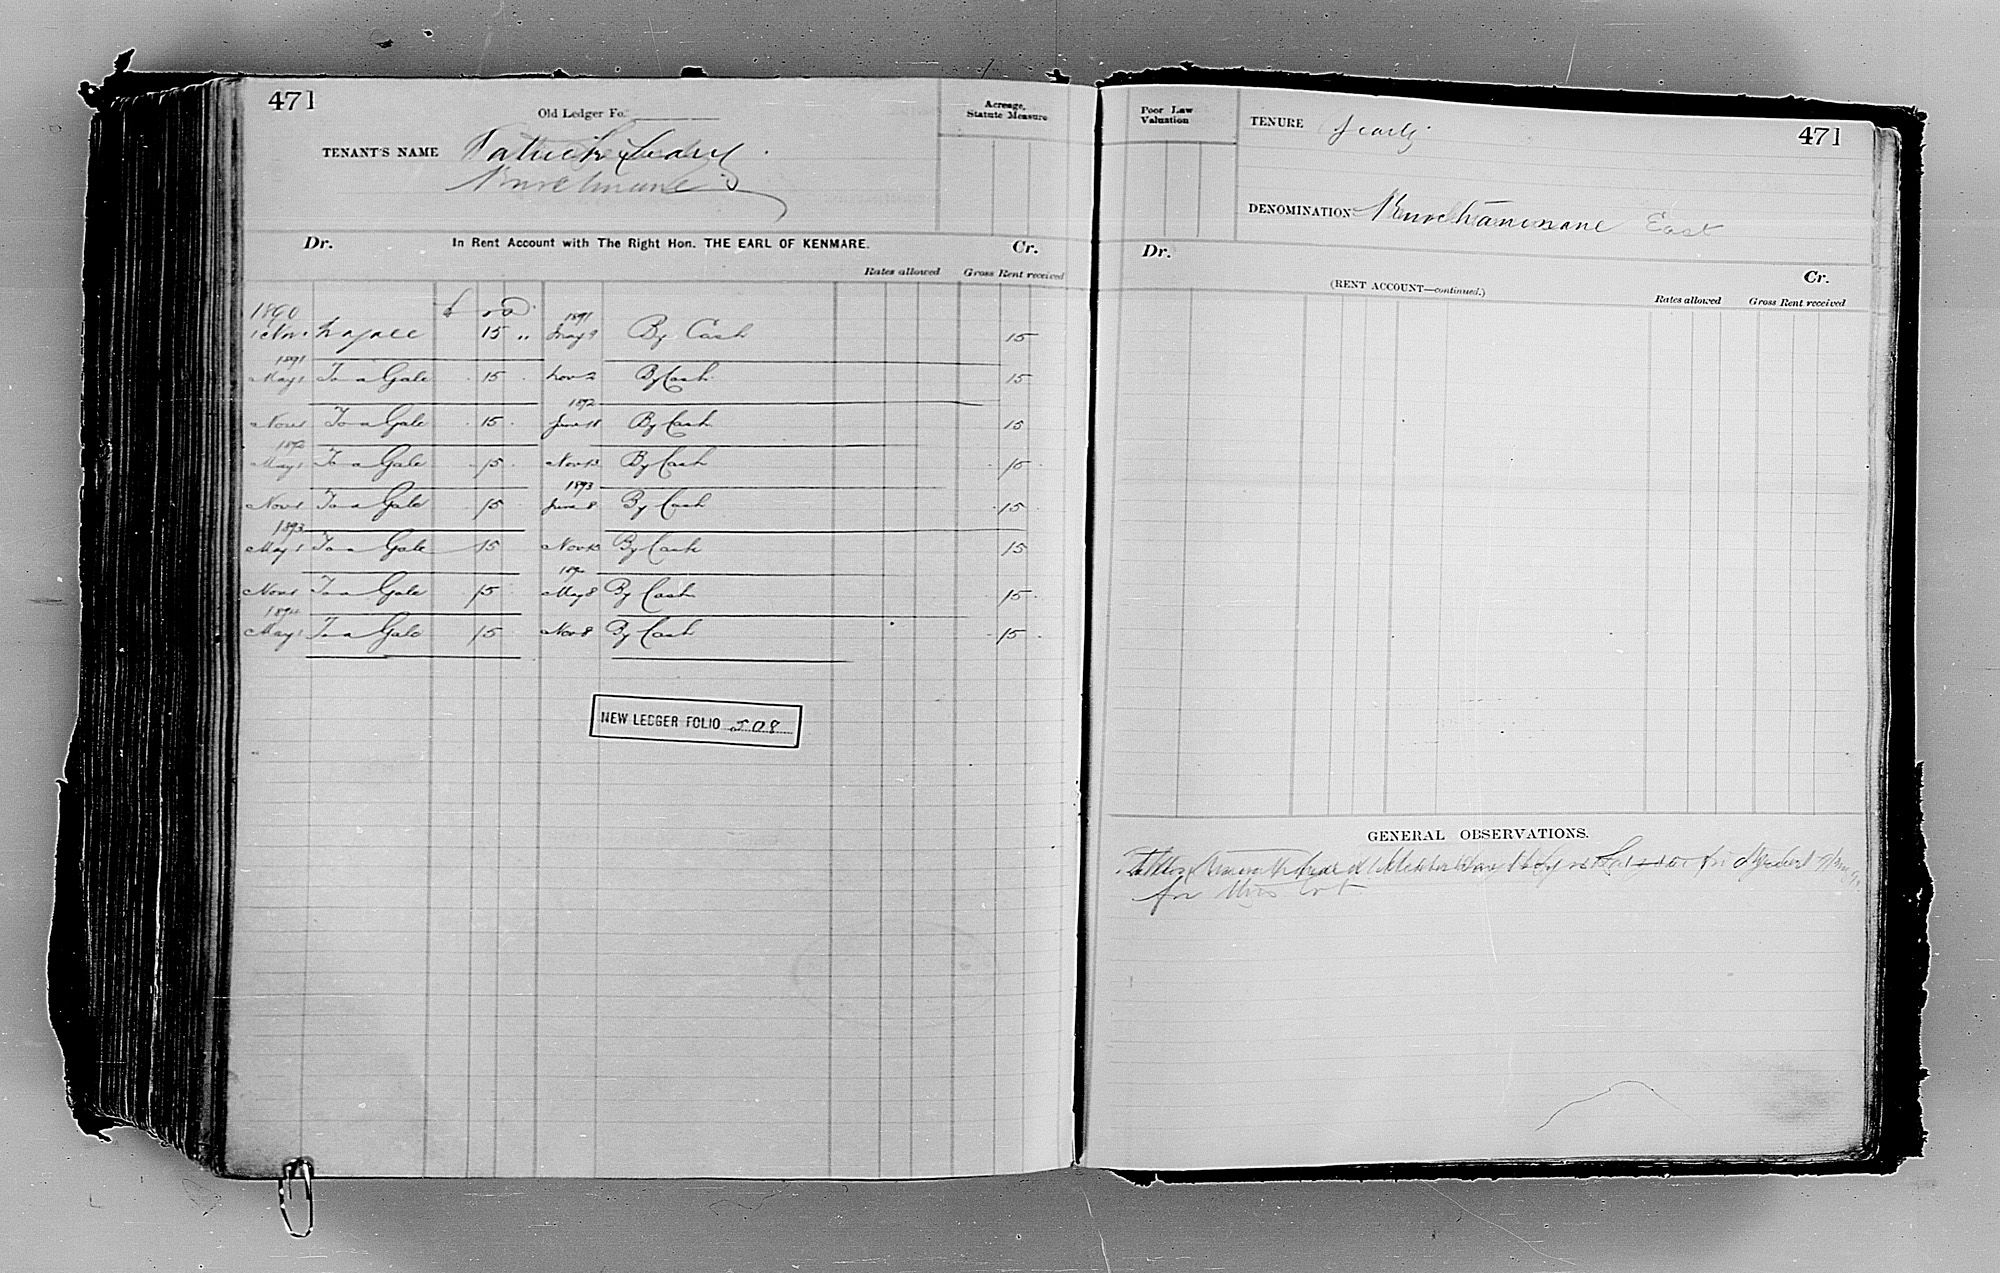 471
Old Ledger Fo.
Acreage,
Statute Measure
TENANT'S NAME Patrick Leary
Dr. In Rent Account with The Right Hon. THE EARL OF KENMARE. Cr.
Rates allowed Gross Rent received
1890 £ s d 1891
1 Nov. 15 " May 9 By Cash 15
1891
May 1 To a Gale 15 Nov 2 By Cash 15
1892
Nov 1 To a Gale 15 June 18 By Cash 15
1892
May 1 To a Gale 15 Nov 13 By Cash 15
1893
Nov 1 To a Gale 15 June 8 By Cash 15
1893
May 1 To a Gale 15 Nov 13 By Cash 15
Nov 1 To a Gale 15 May 8 By Cash 15
1894
May 1 To a Gale 15 Nov 8 By Cash 15
NEW LEDGER FOLIO 508
Poor Law
Valuation
TENURE Yearly
471
DENOMINATION East
Dr. Cr.
(RENT ACCOUNT—continued.)
Rates allowed Gross Rent received
GENERAL OBSERVATIONS.
for this lot